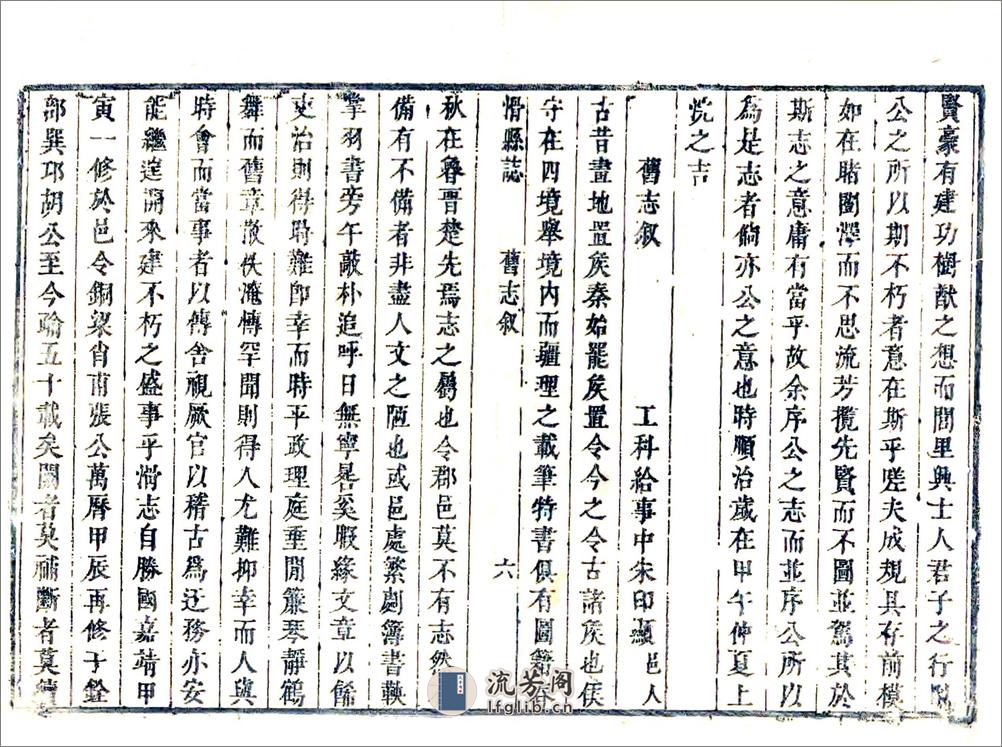 賢豪有建功樹猷之想而閭里興士人君子之行
公之所以期不朽者意在斯乎嗟夫成規具存前模
如在睹閎澤而不思流芳攬先賢而不圖並駕其於
斯志之意庸有當乎故余序公之志而並序公所以
為是志者倘亦公之意也時順治歲在甲午仲夏上
浣之吉
舊志叙 工科給事中朱印顯邑人
古昔畫地置矦秦始罷矦置令今之令古諸矦也矦
守在四境舉境内而疆理之載筆特書俱有圖籍在
滑縣誌 舊志叙 六
秋在魯晋楚先焉志之屬也令郡邑莫不有志然
備有不備者非盡人文之陋也或邑處繁劇簿書鞅
掌羽書旁午敲朴追呼日無寧晷奚暇緣文章以餙
吏治則得時難卽幸而時平政理庭垂閒簾琴靜鶴
舞而舊章散佚淹慱罕聞則得人尤難抑幸而人與
時會而當事者以傳舎視厥官以稽古爲迂務亦安
能繼徃開來建不朽之盛事乎滑志自勝國嘉靖甲
寅一修於邑令銅梁肖甫張公萬曆甲辰再修于銓
部巽邛胡公至今踰五十載矣闕者莫補斷者莫續
流芳阁
lfglib.cn